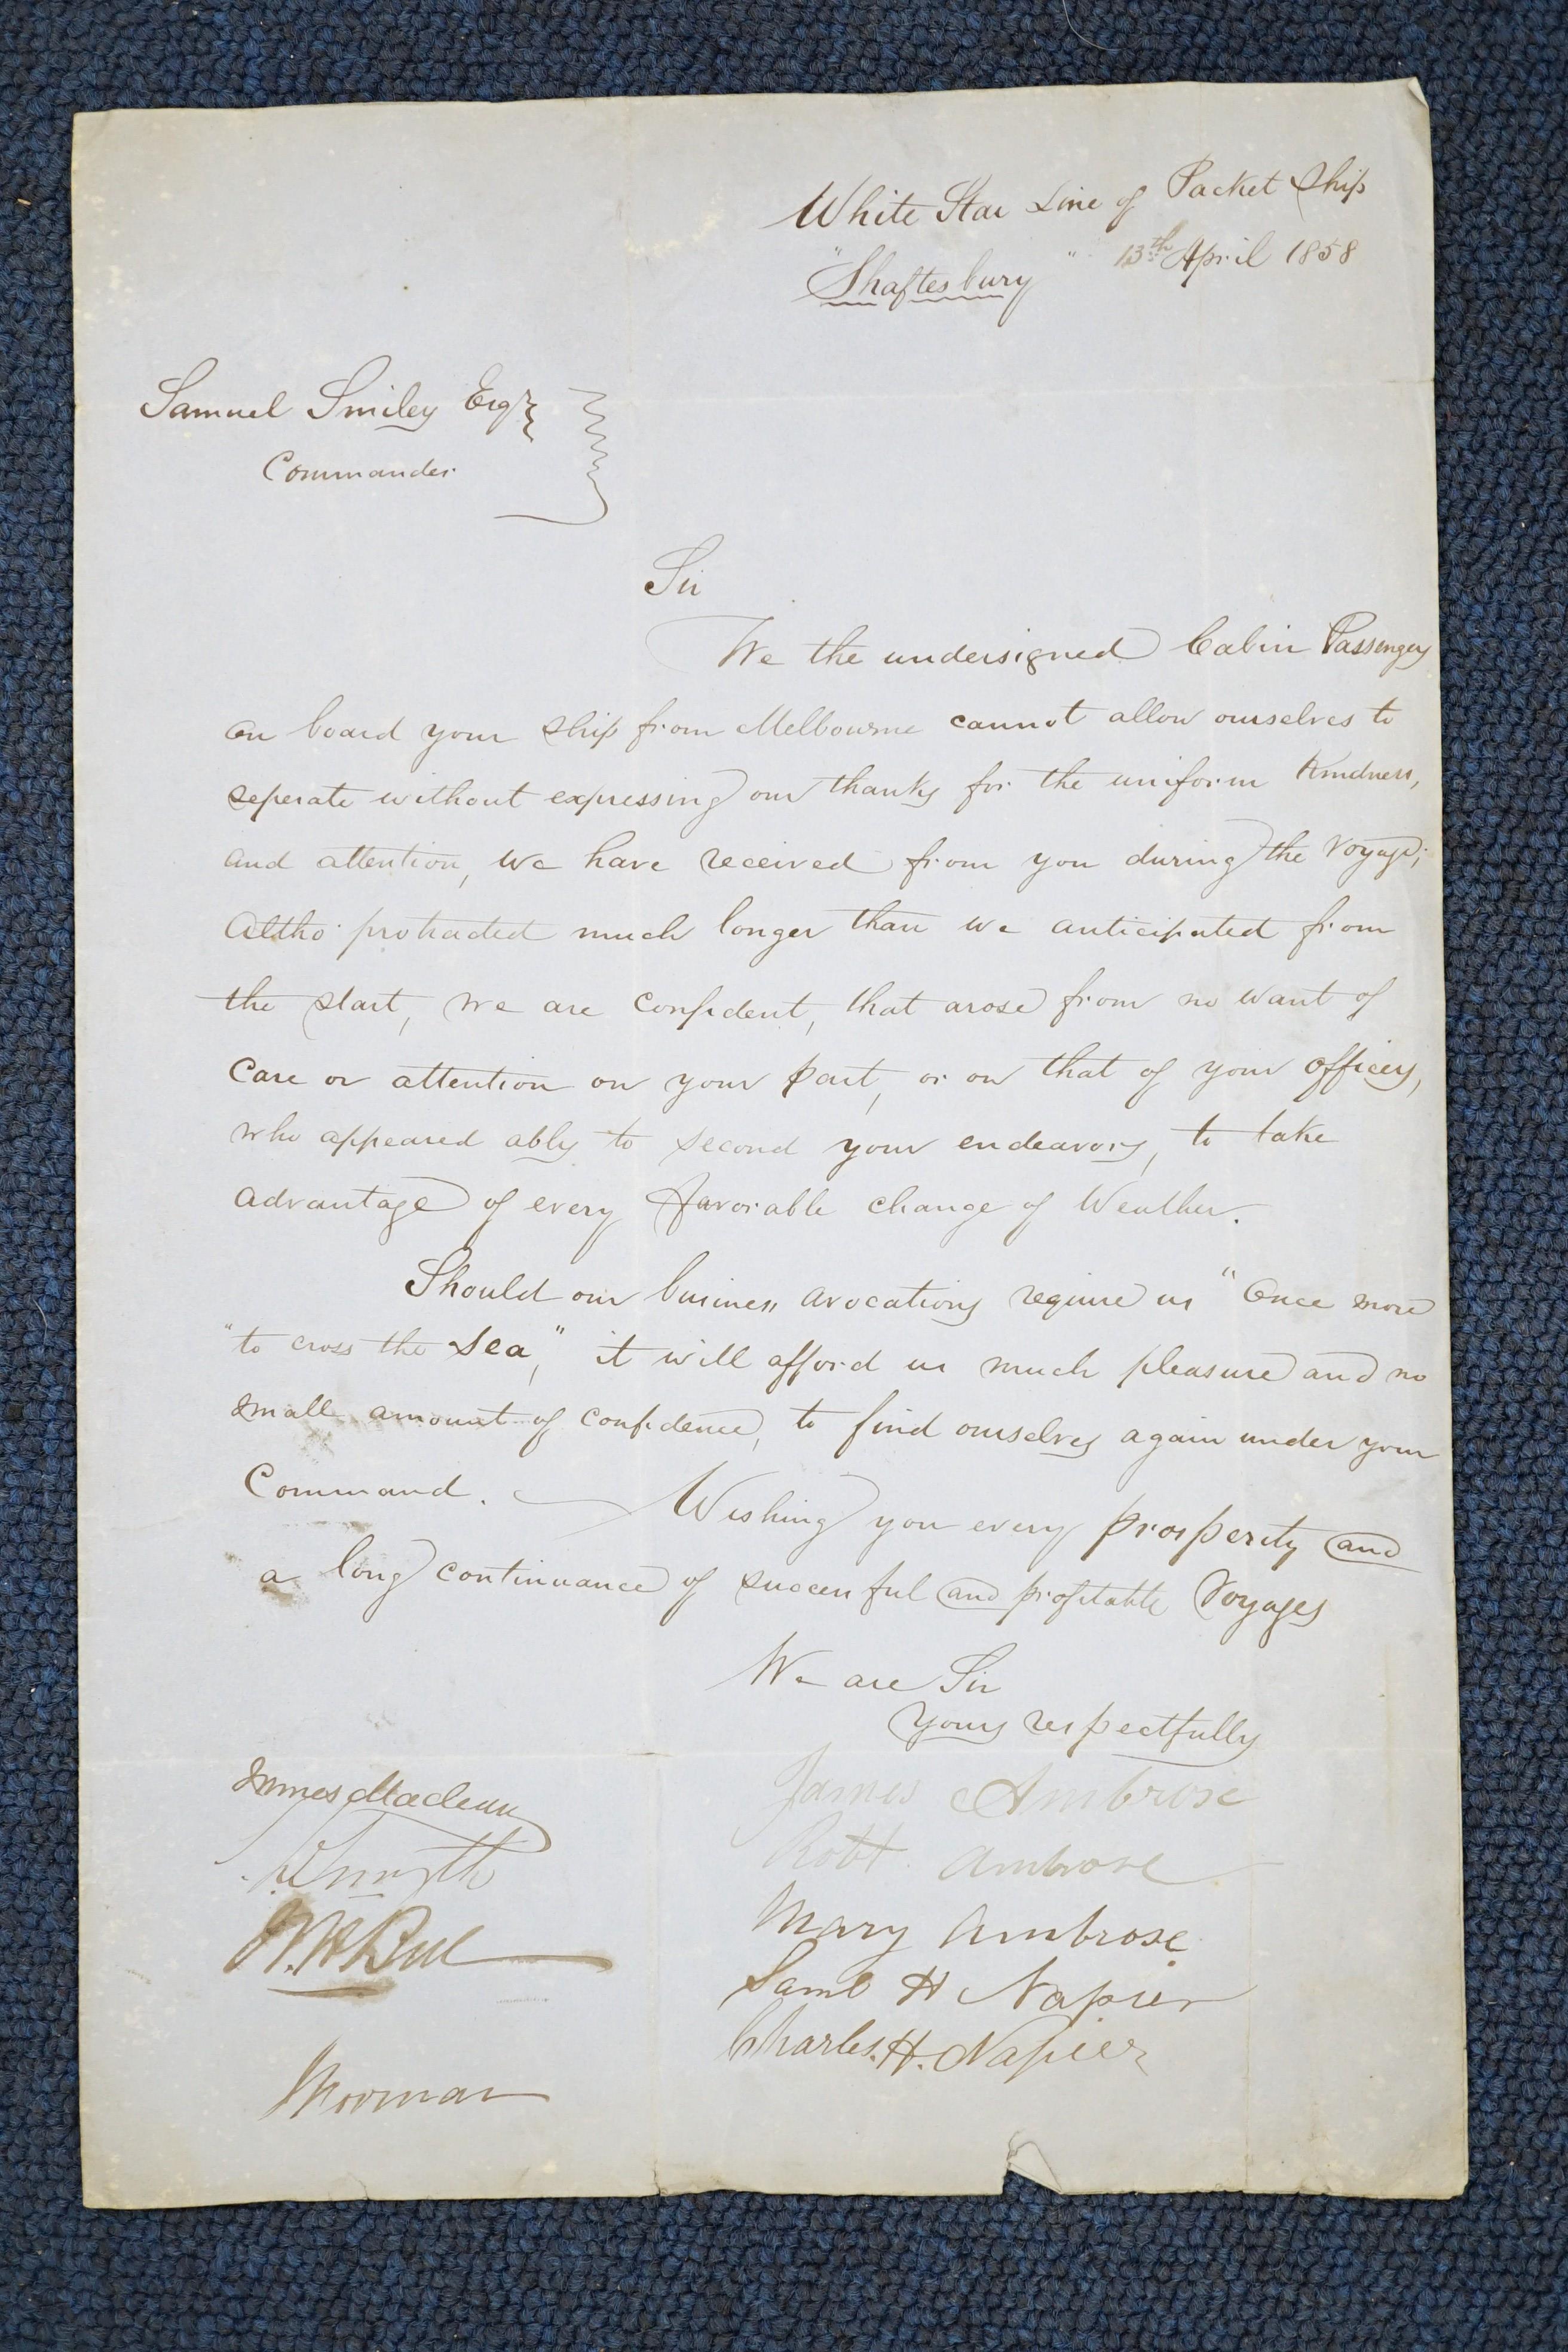 White Star Line of Packet Ship
"Shaftesbury" 13th April 1858
Samuel Smiley Esqr
Commander
Sir
We the undersigned Cabin Passengers
on board your ship from Melbourne cannot allow ourselves to
seperate without expressing our thanks for the uniform kindness,
and attention, we have received from you during the voyage;
altho' protracted much longer than we anticipated from
the start, we are confident, that arose from no want of
care or attention on your part, or on that of your officers,
who appeared ably to second your endeavors, to take
advantage of every favorable change of Weather.
Should our business avocations require us "Once more
"to cross the sea," it will afford us much pleasure and no
small amount of confidence, to find ourselves again under your
Command. Wishing you every prosperity and
a long continuance of successful and profitable Voyages
We are Sir
yours respectfully
James Ambrose
Robt. Ambrose
Mary Ambrose
Saml H Napier
Charles. H. Napier
Smyth